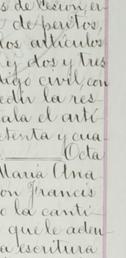 s de Cesion, er
de peritos,
los artículos
y dos y tres
digo civil, con
edir la res
ala el artí
etenta y cua
Octa
María Ana
on Francis
o la canti
que le aden
a escritura